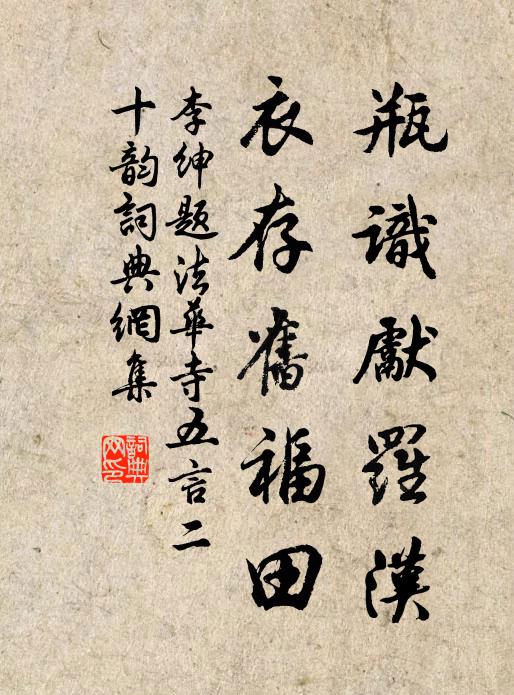 瓶識獻羅漢
衣存舊福田
李紳題法華寺五言二
十韵詞典網集
詞典网印